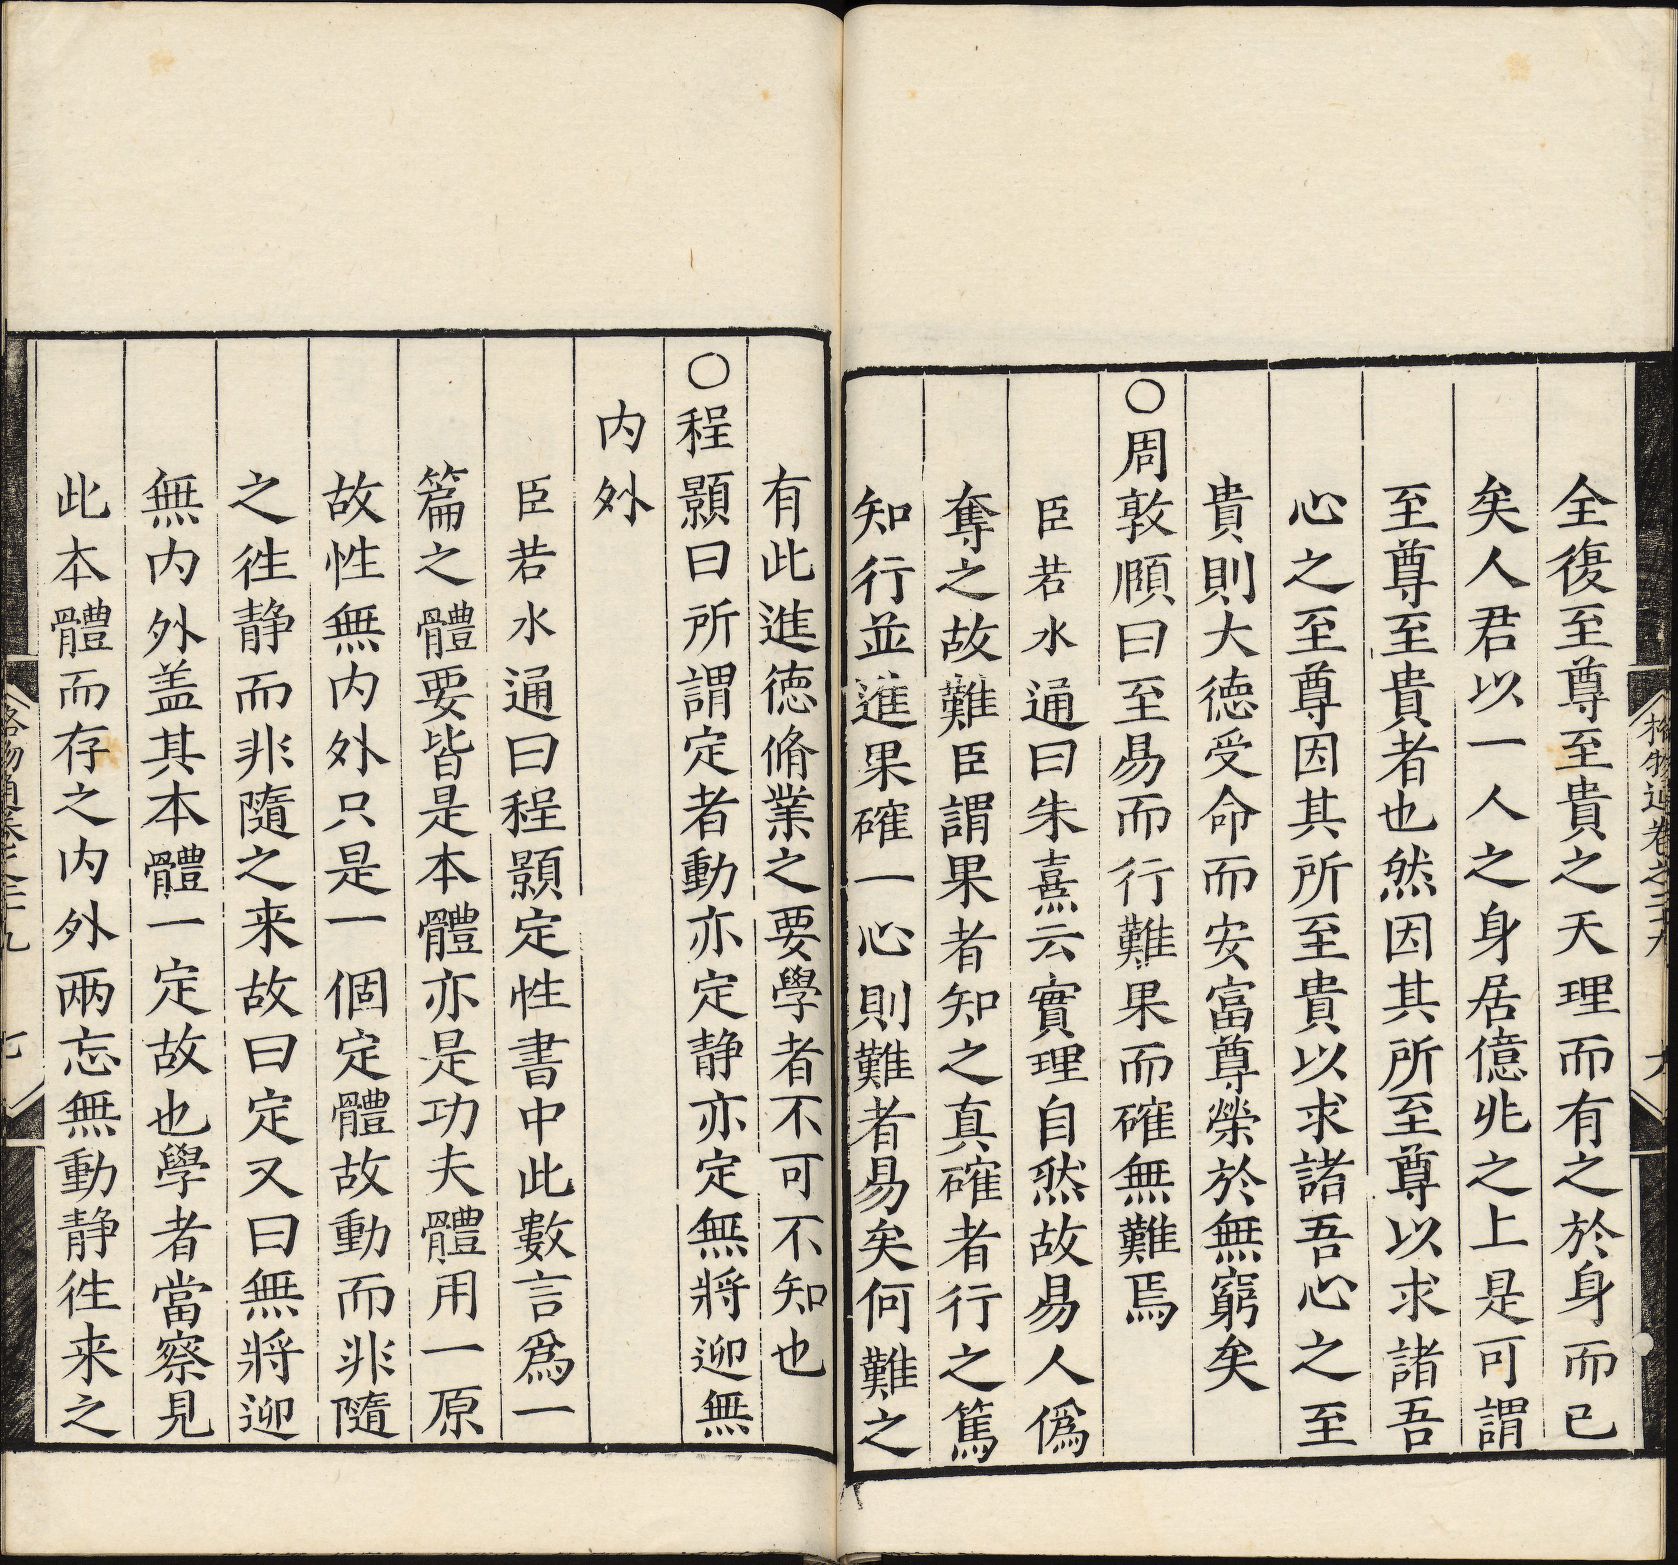 全復至尊至貴之天理而有之於身而已
矣人君以一人之身居億兆之上是可謂
至尊至貴者也然因其所至尊以求諸吾
心之至尊因其所至貴以求諸吾心之至
貴則大德受命而安富尊榮於無窮矣
○周敦頥曰至易而行難果而確無難焉
臣若水通曰朱熹云實理自然故易人偽
奪之故難臣謂果者知之真確者行之篤
知行並進果確一心則難者易矣何難之
有此進德脩業之要學者不可不知也
○程顥曰所謂定者動亦定静亦定無將迎無
内外
臣若水通曰程顥定性書中此數言爲一
篇之體要皆是本體亦是功夫體用一原
故性無内外只是一個定體故動而非隨
之徃静而非隨之来故曰定又曰無將迎
無内外盖其本體一定故也學者當察見
此本體而存之内外兩忘無動静徃来之
格物通卷之二十九